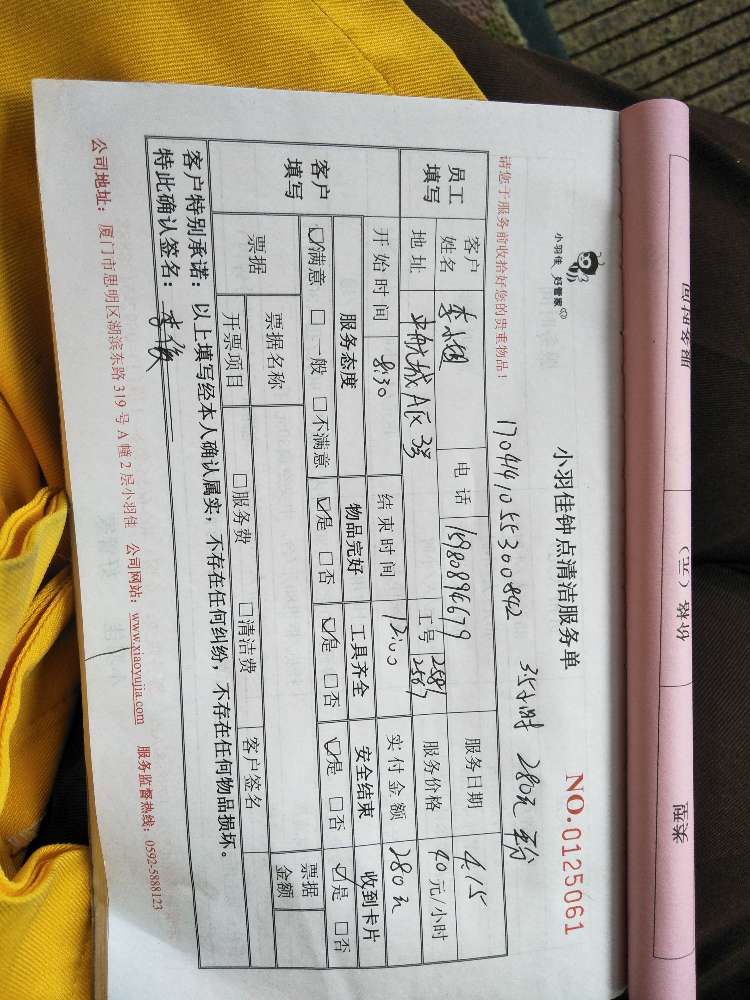 小羽佳 好管家
小羽佳钟点清洁服务单
NO.0125061
1704141055300842 3.5小时 280元
请您于服务前收拾好您的贵重物品！
员工填写 客户姓名 电话 15980896679 服务日期 4.15
地址 亚航城A区3号 工号 服务价格 40元/小时
开始时间 8:30 结束时间 12:00 实付金额 280元
客户填写 服务态度 物品完好 工具齐全 安全结束 收到卡片
☑满意 □一般 □不满意 ☑是 □否 ☑是 □否 ☑是 □否 ☑是 □否
票据 票据名称 客户签名 票据金额
开票项目 □服务费 □清洁费
客户特别承诺：以上填写经本人确认属实，不存在任何纠纷，不存在任何物品损坏。
特此确认签名：
公司地址：厦门市思明区湖滨东路319号A幢2层小羽佳 公司网站：www.xiaoyujia.com 服务监督热线：0592-5888123
价格（元）